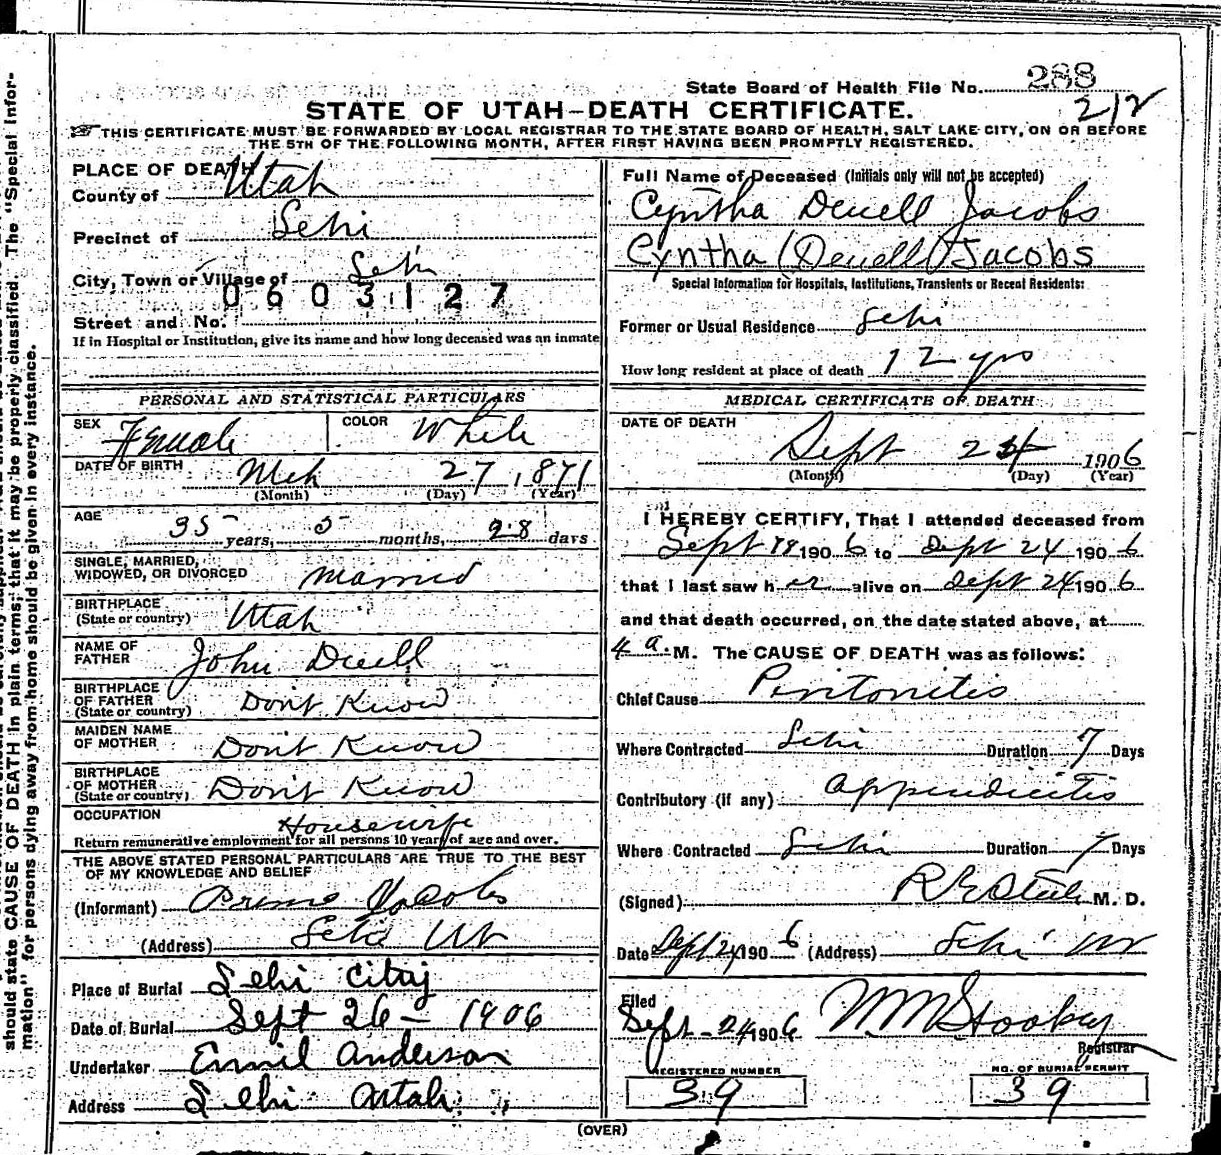 State Board of Health File No. 288
212
STATE OF UTAH-DEATH CERTIFICATE.
THIS CERTIFICATE MUST BE FORWARDED BY LOCAL REGISTRAR TO THE STATE BOARD OF HEALTH, SALT LAKE CITY, ON OR BEFORE
THE 5TH OF THE FOLLOWING MONTH, AFTER FIRST HAVING BEEN PROMPTLY REGISTERED.
PLACE OF DEATH
County of Utah
Precinct of Lehi
City, Town or Village of Lehi
0603127
Street and No.
If in Hospital or Institution, give its name and how long deceased was an inmate
PERSONAL AND STATISTICAL PARTICULARS
SEX Female COLOR White
DATE OF BIRTH Mch 27, 1871
(Month) (Day) (Year)
AGE
35 years, 5 months, 28 days
SINGLE, MARRIED,
WIDOWED, OR DIVORCED married
BIRTHPLACE
(State or country) Utah
NAME OF
FATHER John Duell
BIRTHPLACE
OF FATHER
(State or country) Don't Know
MAIDEN NAME
OF MOTHER Don't Know
BIRTHPLACE
OF MOTHER
(State or country) Don't Know
OCCUPATION Housewife
Return remunerative employment for all persons 10 years of age and over.
THE ABOVE STATED PERSONAL PARTICULARS ARE TRUE TO THE BEST
OF MY KNOWLEDGE AND BELIEF
(Informant) Jacobs
(Address) Lehi Ut
Place of Burial Lehi City
Date of Burial Sept 26 - 1906
Undertaker Emil Anderson
Address Lehi Utah
Full Name of Deceased (Initials only will not be accepted)
Cyntha Deuell Jacobs
Cyntha (Deuell) Jacobs
Special Information for Hospitals, Institutions, Transients or Recent Residents:
Former or Usual Residence Lehi
How long resident at place of death 12 yrs
MEDICAL CERTIFICATE OF DEATH
DATE OF DEATH
Sept 24 1906
(Month) (Day) (Year)
I HEREBY CERTIFY, That I attended deceased from
Sept 18 1906 to Sept 24 1906
that I last saw her alive on Sept 24 1906
and that death occurred, on the date stated above, at
4 a. M. The CAUSE OF DEATH was as follows:
Chief Cause Peritonitis
Where Contracted Lehi Duration 7 Days
Contributory (if any) Appendicitis
Where Contracted Lehi Duration 7 Days
(Signed) R E Steele M. D.
Date Sept 24 1906 (Address) Lehi Ut
Filed
Sept - 24 1906 Stookey
Registrar
REGISTERED NUMBER
39
NO. OF BURIAL PERMIT
39
(OVER)
should state CAUSE OF DEATH in plain terms, that it may be properly classified. The "Special Infor-
mation" for persons dying away from home should be given in every instance.